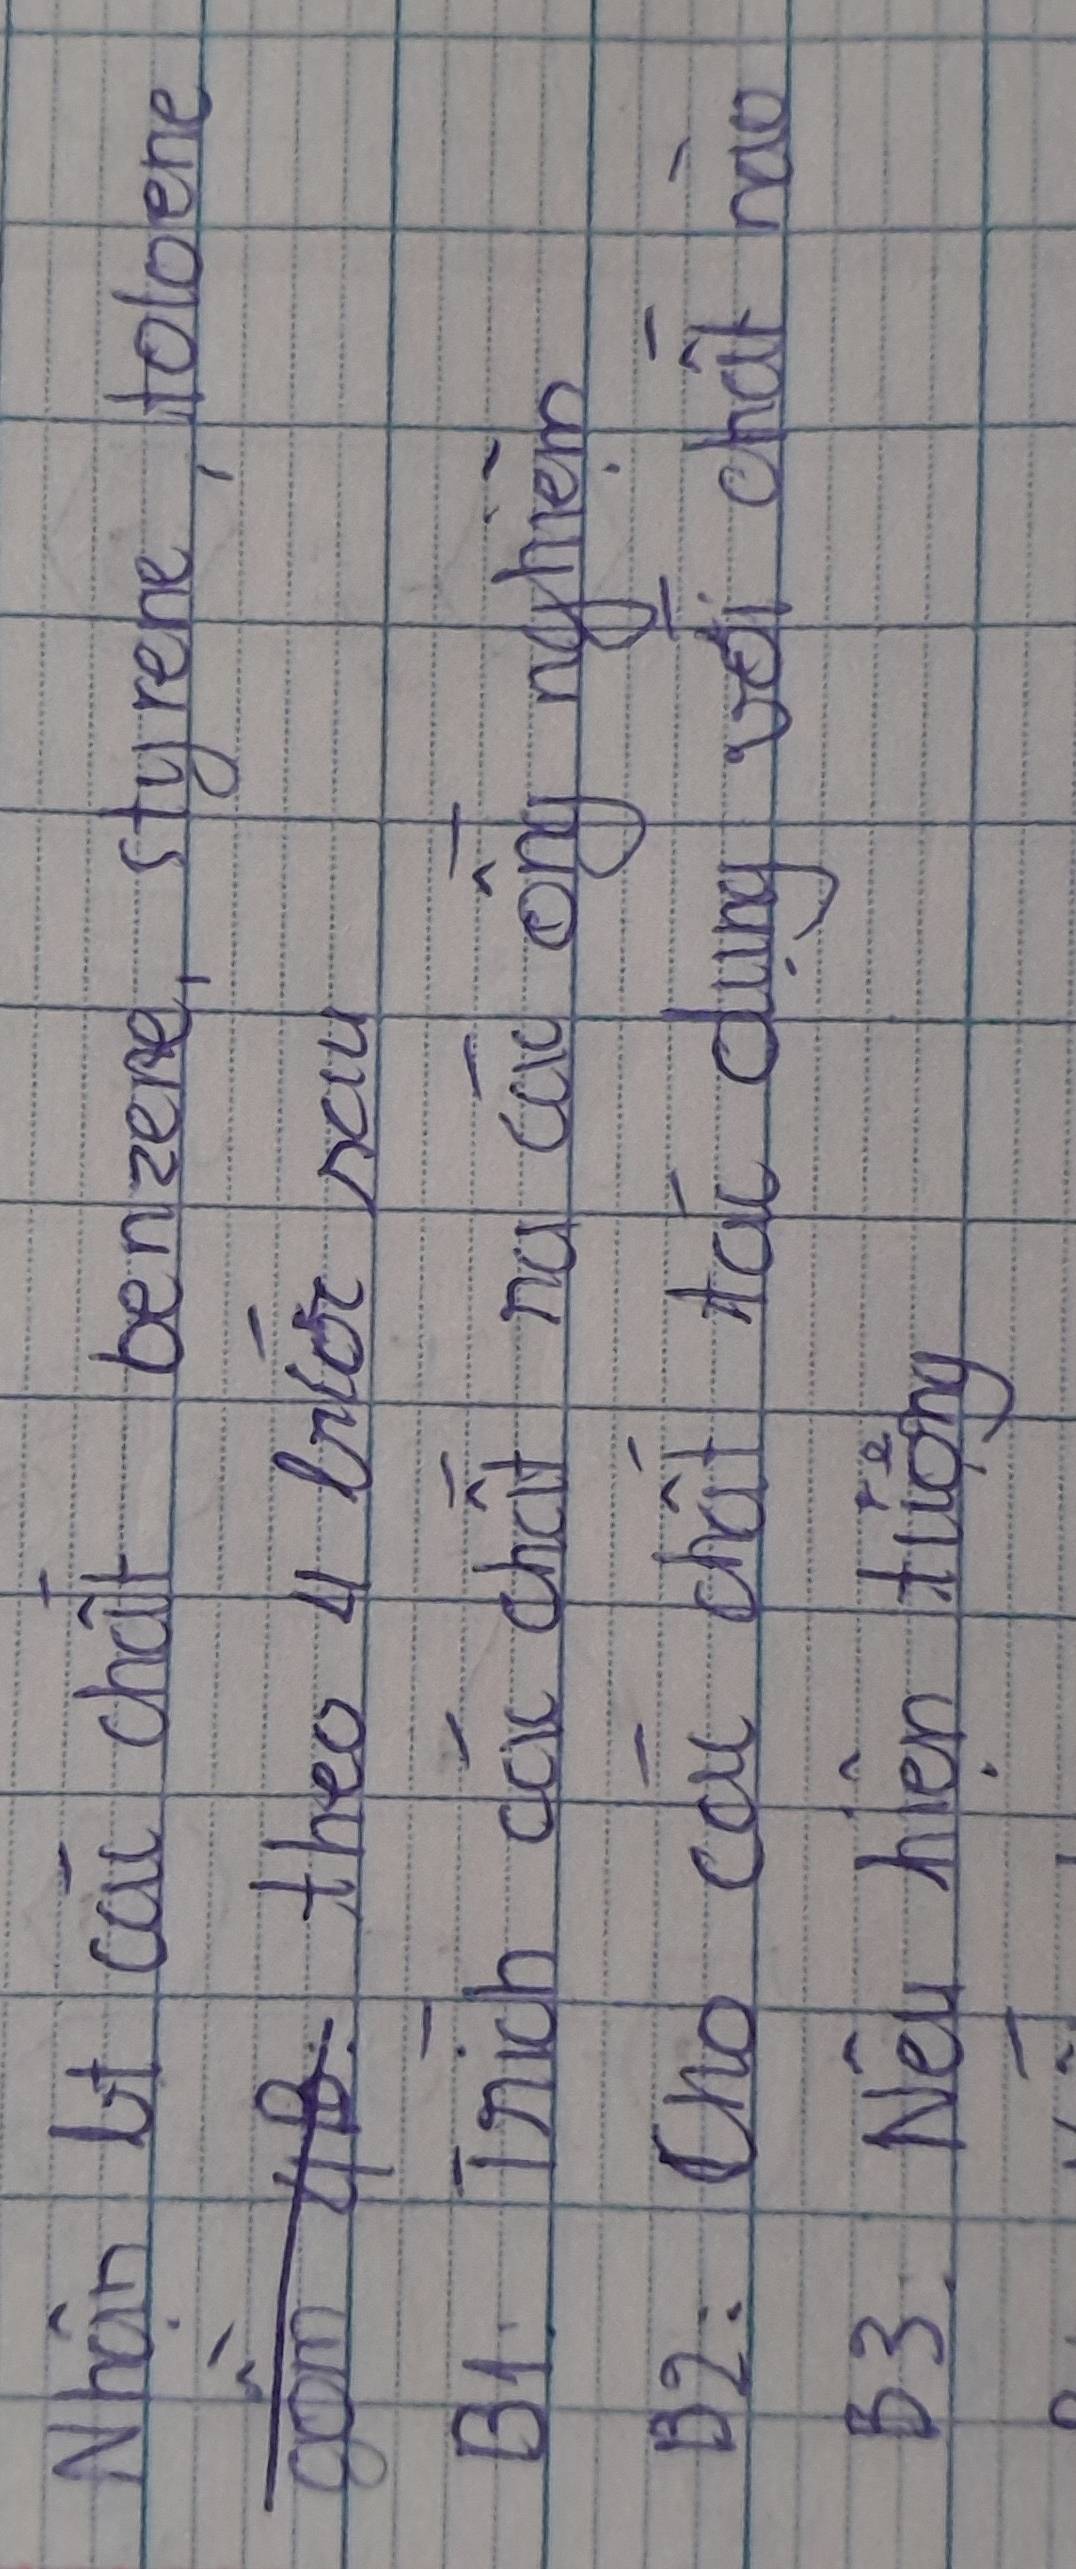 Nhận bt các chất benzene, styrene, tolorene
gồm 4 b theo 4 bước sau
B1. Trích các chất ra các ống nghiệm
B2: Cho các chất tác dụng với chất nào
B3. Nêu hiện tượng